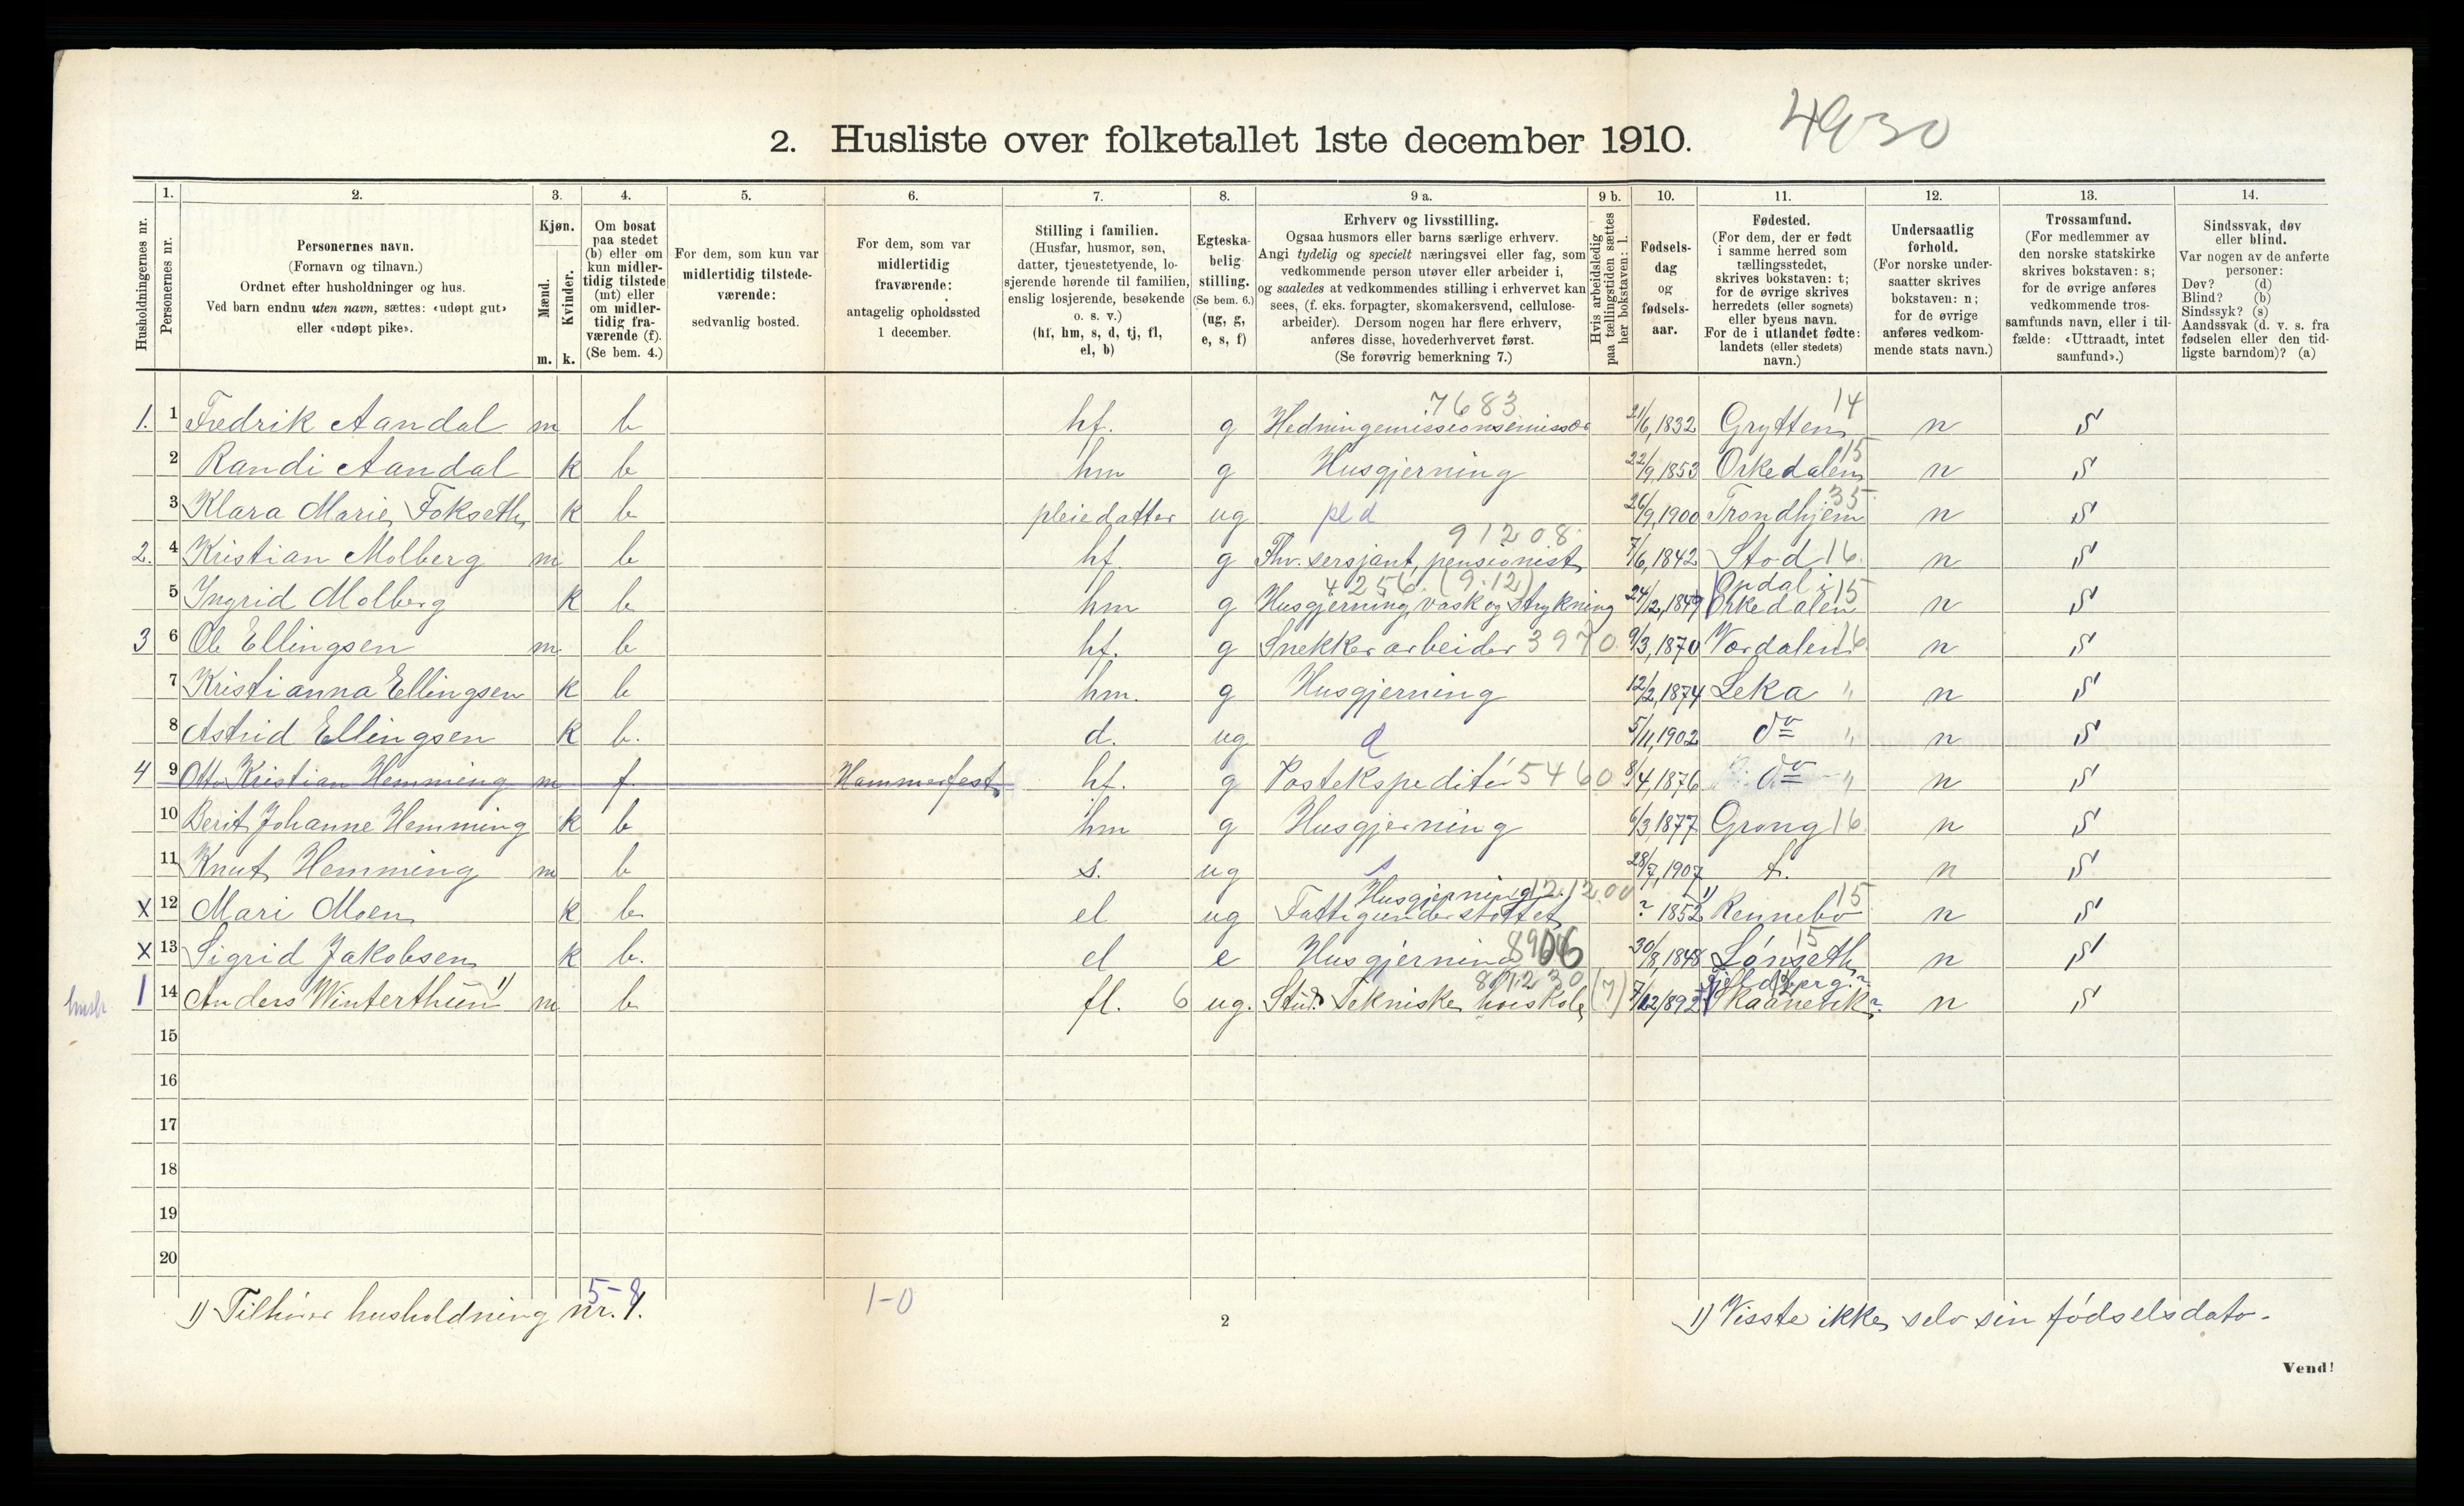 4930
2. Husliste over folketallet 1ste december 1910.
Husholdningernes nr.
1. Personernes nr.
2. Personernes navn.
(Fornavn og tilnavn.)
Ordnet efter husholdninger og hus.
Ved barn endnu uten navn, sættes: «udøpt gut»
eller «udøpt pike».
3. Kjøn.
Mænd. m.
Kvinder. k.
4. Om bosat
paa stedet
(b) eller om
kun midler-
tidig tilstede
(mt) eller
om midler-
tidig fra-
værende (f).
(Se bem. 4.)
5. For dem, som kun var
midlertidig tilstede-
værende:
sedvanlig bosted.
6. For dem, som var
midlertidig
fraværende:
antagelig opholdssted
1 december.
7. Stilling i familien.
(Husfar, husmor, søn,
datter, tjenestetyende, lo-
sjerende hørende til familien,
enslig losjerende, besøkende
o. s. v.)
(hf, hm, s, d, tj, fl,
el, b)
8. Egteska-
belig
stilling.
(Se bem. 6.)
(ug, g,
e, s, f)
9 a. Erhverv og livsstilling.
Ogsaa husmors eller barns særlige erhverv.
Angi tydelig og specielt næringsvei eller fag, som
vedkommende person utøver eller arbeider i,
og saaledes at vedkommendes stilling i erhvervet kan
sees, (f. eks. forpagter, skomakersvend, cellulose-
arbeider). Dersom nogen har flere erhverv,
anføres disse, hovederhvervet først.
(Se forøvrig bemerkning 7.)
9 b. Hvis arbeidsledig
paa tællingstiden sættes
her bokstaven: l.
10. Fødsels-
dag
og
fødsels-
aar.
11. Fødested.
(For dem, der er født
i samme herred som
tællingsstedet,
skrives bokstaven: t;
for de øvrige skrives
herredets (eller sognets)
eller byens navn.
For de i utlandet fødte:
landets (eller stedets)
navn.)
12. Undersaatlig
forhold.
(For norske under-
saatter skrives
bokstaven: n;
for de øvrige
anføres vedkom-
mende stats navn.)
13. Trossamfund.
(For medlemmer av
den norske statskirke
skrives bokstaven: s;
for de øvrige anføres
vedkommende tros-
samfunds navn, eller i til-
fælde: «Uttraadt, intet
samfund».)
14. Sindssvak, døv
eller blind.
Var nogen av de anførte
personer:
Døv? (d)
Blind? (b)
Sindssyk? (s)
Aandssvak (d. v. s. fra
fødselen eller den tid-
ligste barndom)? (a)
7683 14
1. 1 Fredrik Aandal m b hf. g Hedningemissionsemissær 21/6, 1832 Grytten n s
2 Randi Aandal k b hm g Husgjerning 22/9, 1853 Orkedalen 15 n s
3 Klara Marie Fokseth k b pleiedatter ug pl d 26/9, 1900 Trondhjem 35 n s
91208
2. 4 Kristian Molberg m b hf. g Fhv. sersjant, pensionist 7/6, 1842 Stod 16. n s
4256. (9.12) Opdal i 15
5 Ingrid Molberg k b hm g Husgjerning, vask og strykning 24/2, 1849 Orkedalen n s
3 6 Ole Ellingsen m b hf. g Snekkerarbeider 3970 9/3, 1870 Værdalen 16 n s
7 Kristianna Ellingsen k b hm. g Husgjerning 12/2, 1874 Leka " n s
8 Astrid Ellingsen k b. d. ug d 5/11, 1902 do " n s
4 9 Otto Kristian Hemming m f Hammerfest hf. g Postekspeditør 5460 8/4, 1876 do " n s
10 Berit Johanne Hemming k b hm g Husgjerning 6/3 1877 Grong 16 n s
11 Knut Hemming m b s. ug s 28/7, 1907 t. n s
Husgjerning 12.12.00
x 12 Mari Moen k b el ug Fattigunderstøttet ? 1852 1) Rennebo 15 n s
x 13 Sigrid Jakobsen k b. el e Husgjerning 8906 30/8, 1848 Lønseth 15 n s
891230 Fjeldberg?
husb. 1 14 Anders Winterthun 1) m b fl. 6 ug. Stud. Tekniske høiskole (7) 7/12 1892 Skaanevik? n s
15
16
17
18
19
20
5-8
1) Tilhører husholdning nr. 1.
1-0
2
1) Visste ikke selv sin fødselsdato.
Vend!